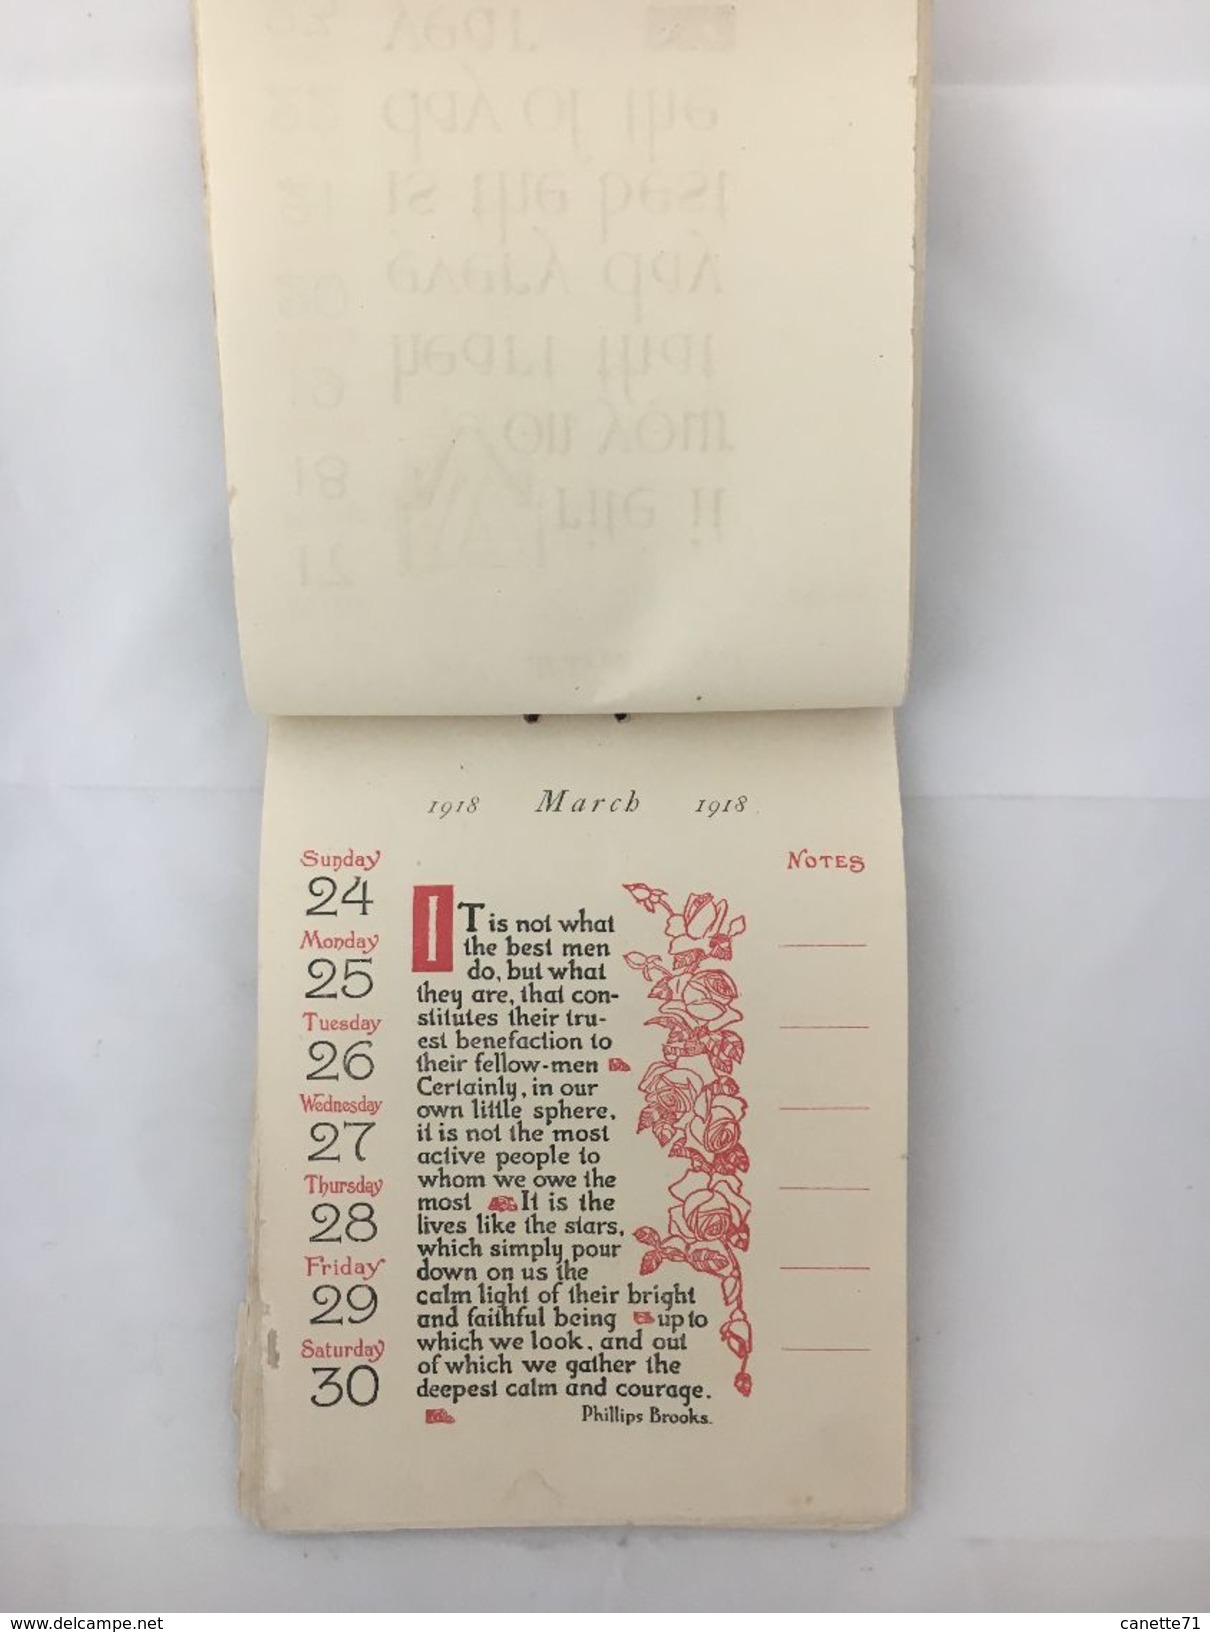 year
day of the
is the best
every day
heart that
on your
rite it
23
22
21
20
19
18
17
1918 March 1918
Sunday
24
Monday
25
Tuesday
26
Wednesday
27
Thursday
28
Friday
29
Saturday
30
IT is not what
the best men
do, but what
they are, that con-
stitutes their tru-
est benefaction to
their fellow-men
Certainly, in our
own little sphere,
it is not the most
active people to
whom we owe the
most It is the
lives like the stars,
which simply pour
down on us the
calm light of their bright
and faithful being up to
which we look, and out
of which we gather the
deepest calm and courage.
Phillips Brooks.
NOTES
www.delcampe.net
canette71